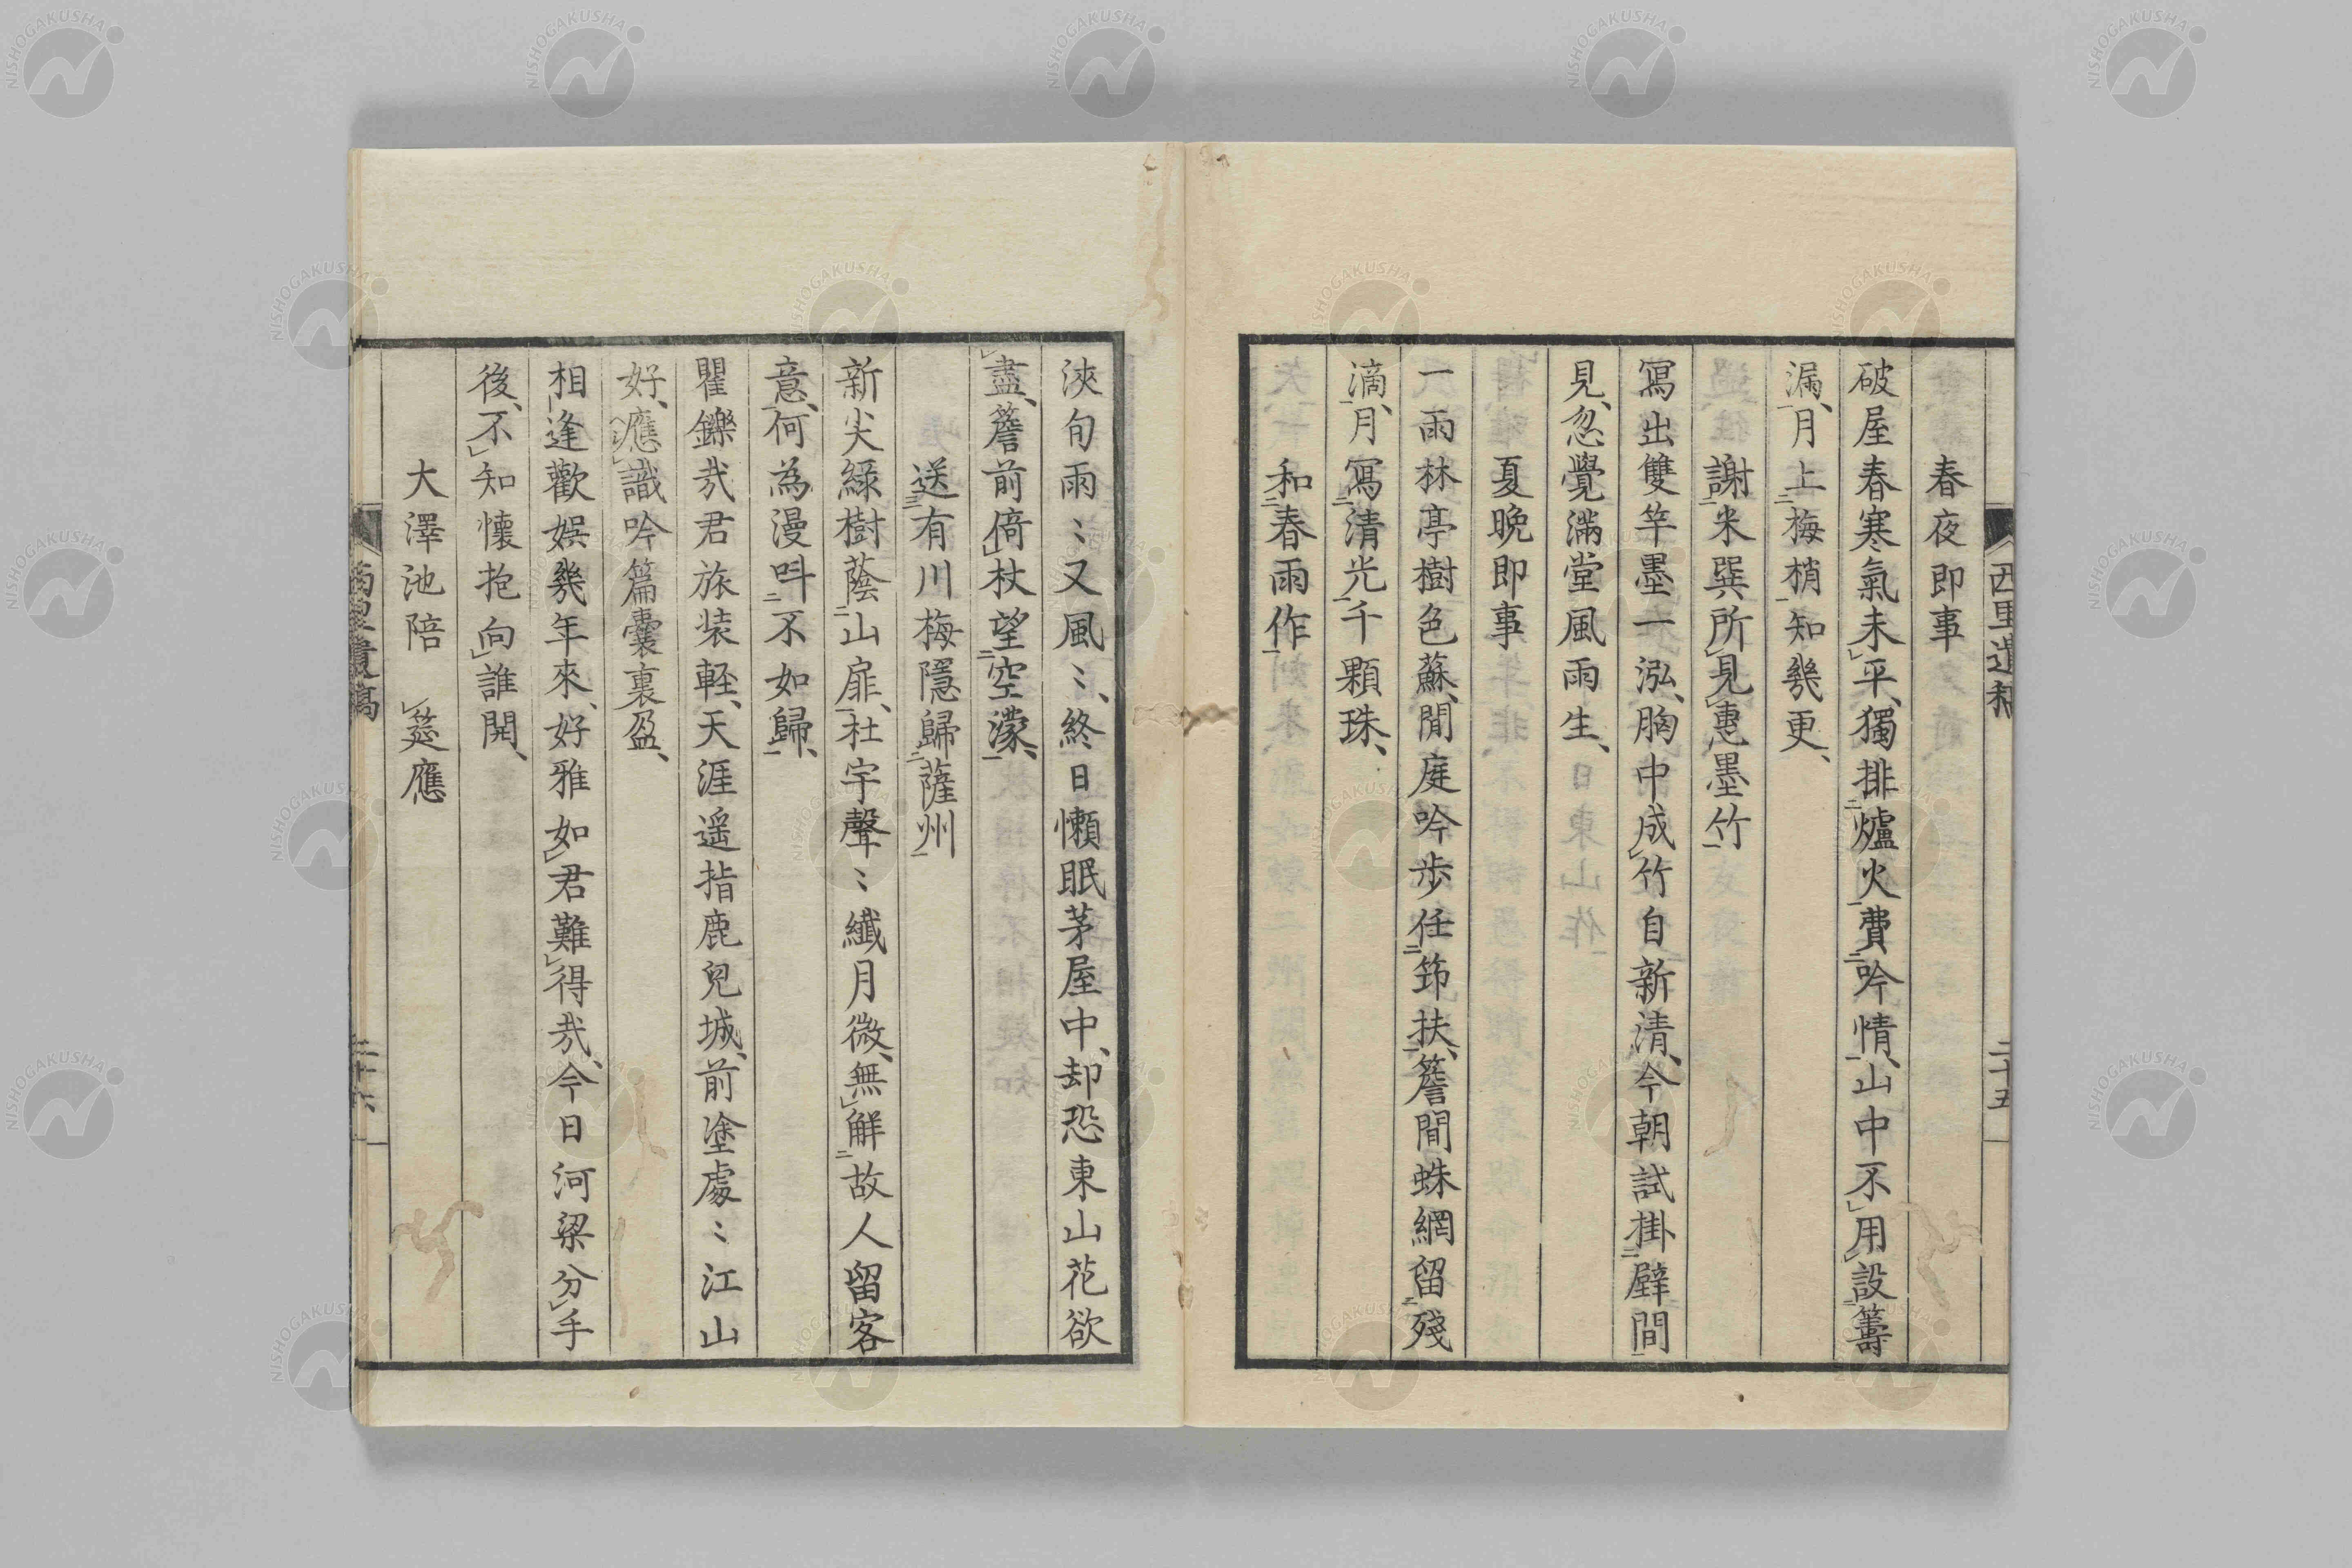 西里遺稿 二十五
春夜即事
破屋春寒氣未平、獨排爐火費吟情、山中不用設籌
漏、月上梅梢知幾更、
謝米巽所見惠墨竹
寫出雙竿墨一泓、胸中成竹自新清、今朝試掛壁間
見、忽覺滿堂風雨生、
夏晩即事
一雨林亭樹色蘇、閒庭吟歩任笻扶、簷間蛛網留殘
滴、月寫清光千顆珠、
和春雨作
浹旬雨〻又風〻、終日懶眠茅屋中、却恐東山花欲
盡、簷前倚杖望空濛、
送有川梅隱歸薩州
新尖綠樹蔭山扉、杜宇聲〻纖月微、無解故人留客
意、何為漫叫不如歸、
瞿鑠哉君旅装軽、天涯遥指鹿兒城、前塗處〻江山
好、應識吟篇囊裏盈、
相逢歡娯幾年來、好雅如君難得哉、今日河梁分手
後、不知懷抱向誰開、
大澤池陪 筵應
西里遺稿 二十六